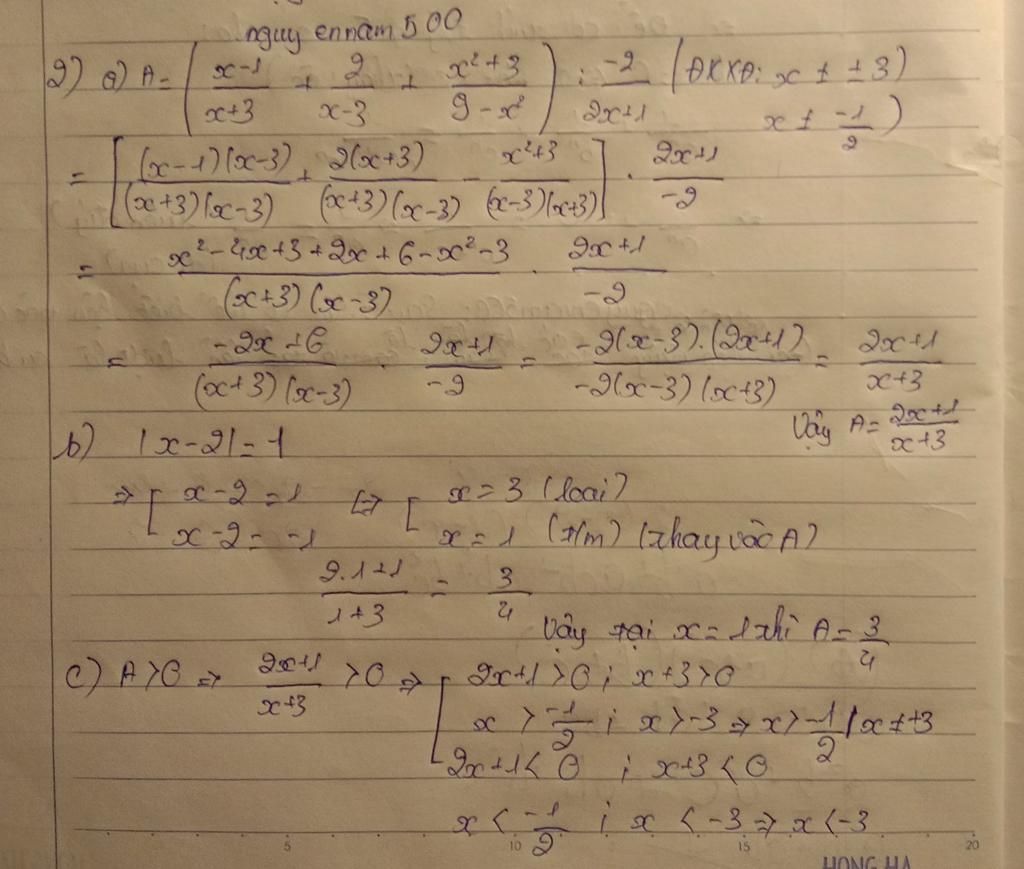 nguyennam500
2) a) A = ( (x-1)/(x+3) + 2/(x-3) + (x²+3)/(9-x²) ) : -2/(2x+1) (ĐKXĐ: x ≠ ±3)
x ≠ -1/2 )
= [ (x-1)(x-3)/(x+3)(x-3) + 2(x+3)/(x+3)(x-3) - (x²+3)/(x-3)(x+3) ] . (2x+1)/-2
= (x²-4x+3+2x+6-x²-3)/(x+3)(x-3) . (2x+1)/-2
= (-2x+6)/(x+3)(x-3) . (2x+1)/-2 = -2(x-3).(2x+1)/-2(x-3)(x+3) = (2x+1)/(x+3)
Vậy A = (2x+1)/(x+3)
b) |x-2| = 1
=> [ x-2 = 1 <=> [ x = 3 (loại)
x-2 = -1 x = 1 (t/m) (thay vào A)
(2.1+1)/(1+3) = 3/4
Vậy tại x = 1 thì A = 3/4
c) A > 0 => (2x+1)/(x+3) > 0 => [ 2x+1 > 0 ; x+3 > 0
x > -1/2 ; x > -3 => x > -1/2 / x ≠ +3
2x+1 < 0 ; x+3 < 0
x < -1/2 ; x < -3 => x < -3
5 10 15 20
HONG HA